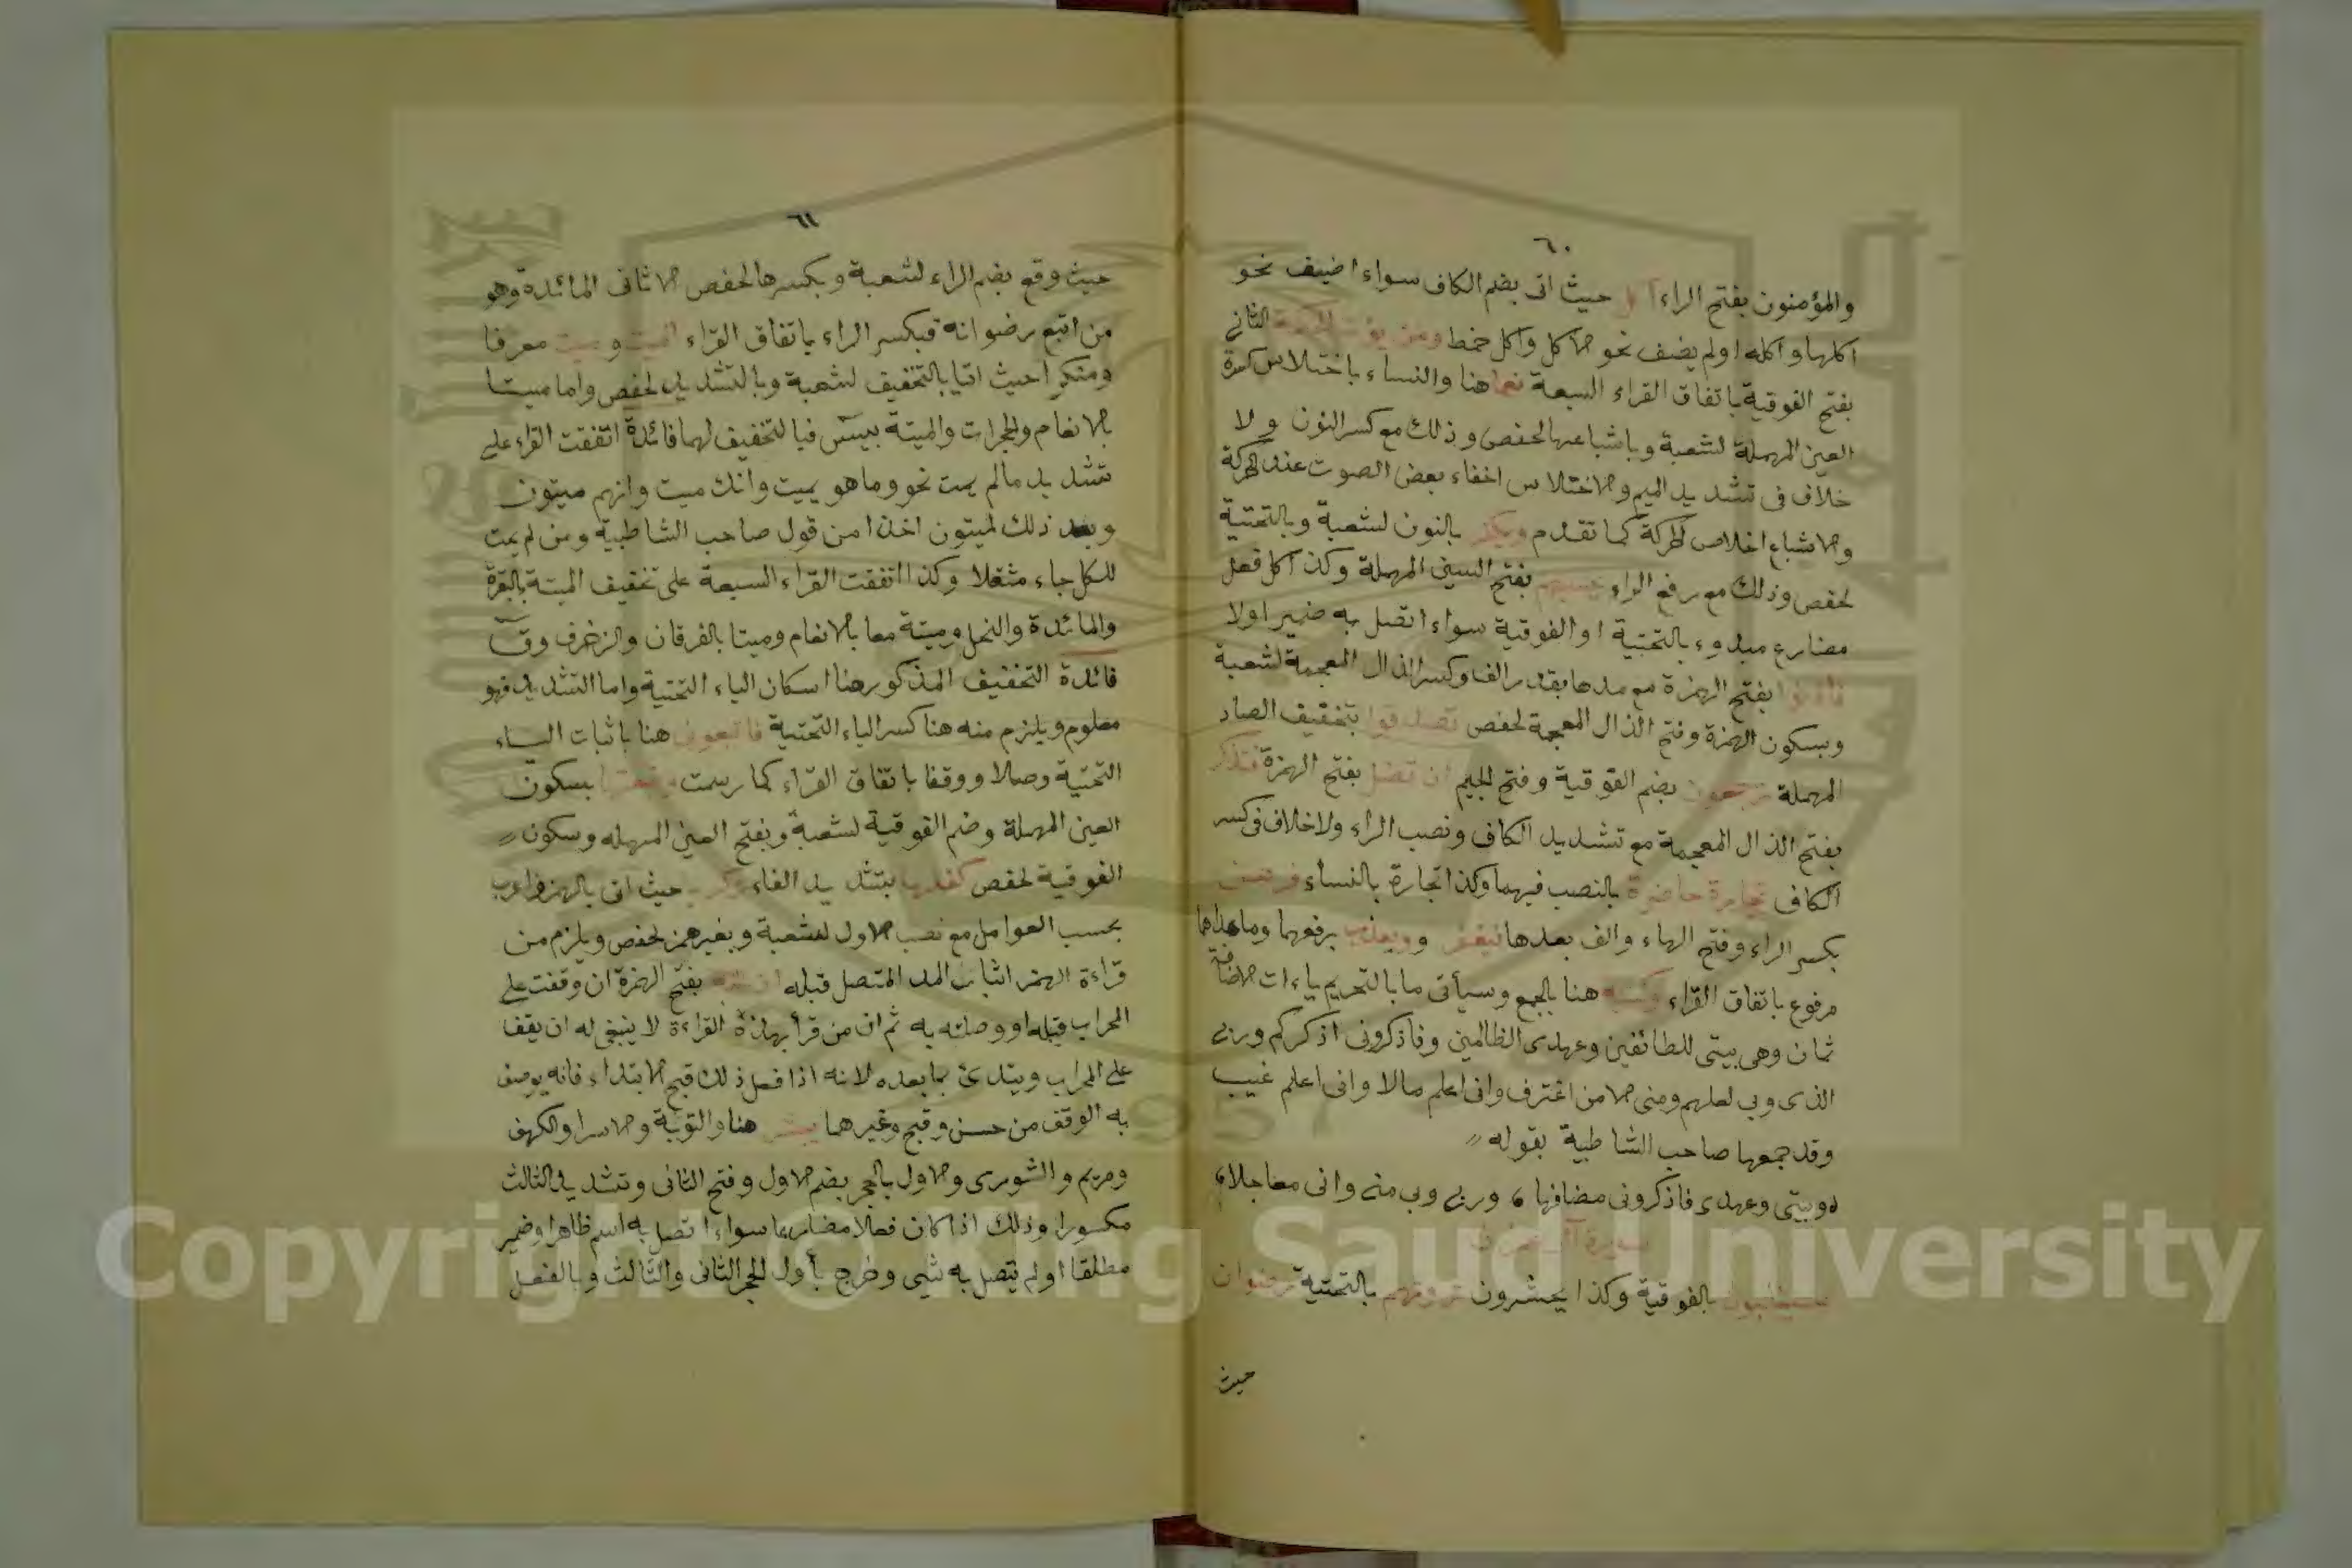 ٦٠
والمؤمنون بفتح الراء أكل حيث اتى بضم الكاف سواء اضيف نحو
اكلها واكله او لم يضف نحو الاكل واكل خمط ومن يؤت الحكمة الثانى
بفتح الفوقية باتفاق القراء السبعة نعما هنا والنساء باختلاس كسرة
العين المهملة لشعبة وباشباعها لحفص وذلك مع كسر النون ولا
خلاف فى تشديد الميم والاختلاس اخفاء بعض الصوت عند الحركة
والاشباع اخلاص الحركة كما تقدم ويكفر بالنون لشعبة وبالتحتية
لحفص وذلك مع رفع الراء يحسبهم بفتح السين المهملة وكذا كل فعل
مضارع مبدوء بالتحتية او الفوقية سواء اتصل به ضمير اولا
فأذنوا بفتح الهمزة مع مدها بقدر الف وكسر الذال المعجمة لشعبة
وبسكون الهمزة وفتح الذال المعجمة لحفص تصدقوا بتخفيف الصاد
المهملة ترجعون بضم الفوقية وفتح الجيم ان تضل بفتح الهمزة فتذكر
بفتح الذال المعجمة مع تشديد الكاف ونصب الراء ولا خلاف فى كسر
الكاف تجارة حاضرة بالنصب فيهما وكذا تجارة بالنساء فرهن
بكسر الراء وفتح الهاء والف بعدها فيغفر ويعذب برفعهما وما عداها
مرفوع باتفاق القراء وكتبه هنا بالجمع وسيأتى ما بالتحريم ياءات الاضافة
ثمان وهى بيتى للطائفين وعهدى الظالمين وفاذكرونى اذكركم وربى
الذى وبى لعلهم ومنى الا من اغترف وانى اعلم مالا وانى اعلم غيب
وقد جمعها صاحب الشاطبية بقوله //
وبيتى وعهدى فاذكرونى مضافها ، وربى وبى منى وانى معا حلا ،
سورة آل عمران
ستغلبون بالفوقية وكذا يحشرون ترونهم بالتحتية رضوان
حيث
٦١
حيث وقع بضم الراء لشعبة وبكسرها لحفص الا ثانى المائدة وهو
من اتبع رضوانه فبكسر الراء باتفاق القراء الميت وميت معرفا
ومنكرا حيث اتيا بالتخفيف لشعبة وبالتشديد لحفص واما ميتا
بالانعام والحجرات والميتة بيس فبالتخفيف لهما فائدة اتفقت القراء على
تشديد مالم يمت نحو وما هو بميت وانك ميت وانهم ميتون
وبعد ذلك لميتون اخذا من قول صاحب الشاطبية ومن لم يمت
للكل جاء مثقلا وكذا اتفقت القراء السبعة على تخفيف الميتة بالبقرة
والمائدة والنحل وميتة معا بالانعام وميتا بالفرقان والزخرف وق
فائدة التخفيف المذكور هنا اسكان الياء التحتية واما التشديد فهو
معلوم ويلزم منه هنا كسر الياء التحتية فاتبعونى هنا باثبات الياء
التحتية وصلا ووقفا باتفاق القراء كما رسمت وضعتها بسكون
العين المهملة وضم الفوقية لشعبة وبفتح العين المهمله وسكون //
الفوقية لحفص كفلها بتشديد الفاء زكريا حيث اتى بالهمز فاعرب
بحسب العوامل مع نصب الاول لشعبة وبغير همز لحفص ويلزم من
قراءة الهمز اثبات المد المتصل قبله ان الله بفتح الهمزة ان وقفت على
المحراب قبله او وصلته به ثم ان من قرأ بهذه القراءة لا ينبغى له ان يقف
على المحراب ويبتدئ بما بعده لانه اذا فعل ذلك قبح الابتداء فانه يوصف
به الوقف من حسن وقبح وغيرهما يبشر هنا والتوبة والاسرا والكهف
ومريم والشورى والاول بالحجر بضم الاول وفتح الثانى وتشديد الثالث
مكسورا وذلك اذا كان فعلا مضارعا سواء اتصل به اسم ظاهر او ضمير
مطلقا او لم يتصل به شيى وخرج بأول الحجر الثانى والثالث وبالفعل
Copyright © King Saud University
1957